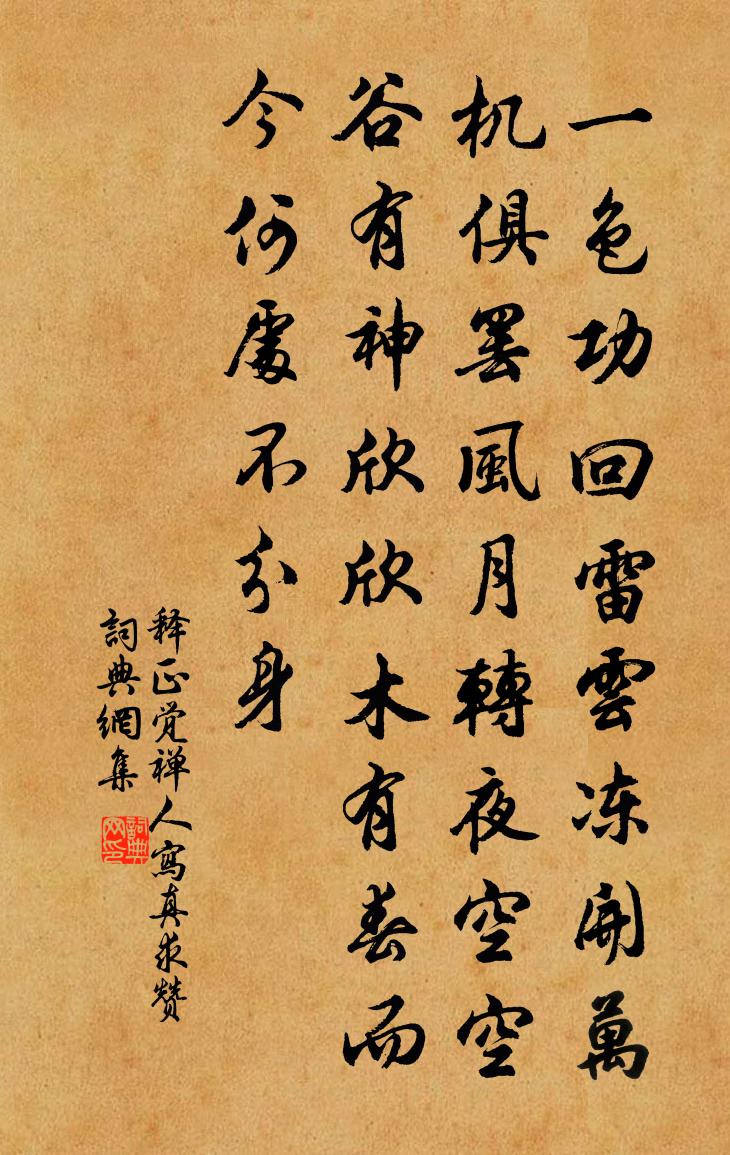 一色功回雷雲冻開萬
机俱罢風月轉夜空空
谷有神欣欣木有春而
今何處不分身
释正觉禅人寫真求赞
詞典網集
詞典网印